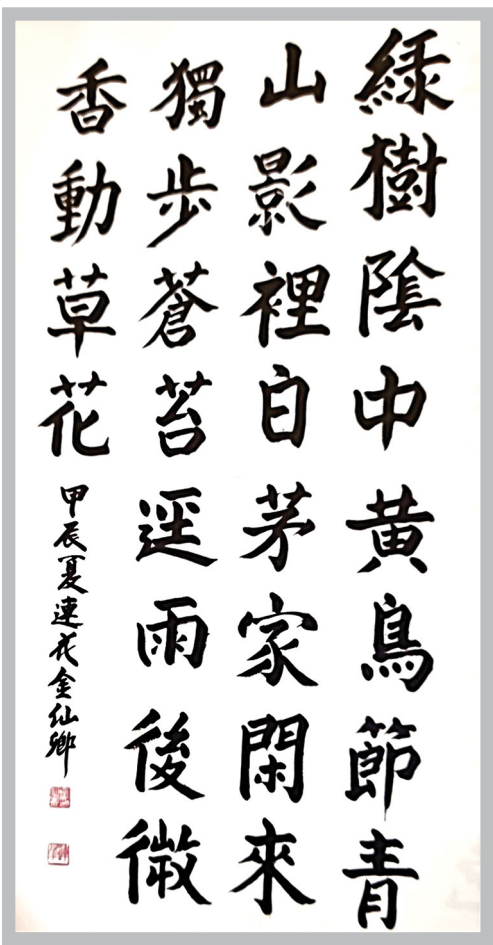 綠樹陰中黃鳥節青
山影裡白茅家閑來
獨步蒼苔逕雨後微
香動草花
甲辰夏連花金仙鄉